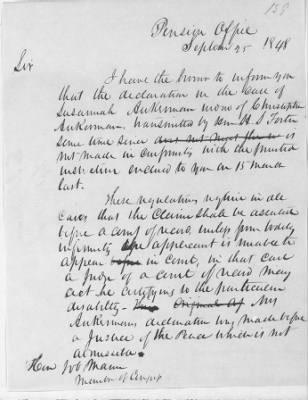 139
Pension Office
Septem 25 1848
Sir
I have the honor to inform you
that the declaration in the case of
Susannah Ankerman widow of Christopher
Ankerman, transmitted by Hon. H. S. Foster
some time since does not meet the is
not made in conformity with the printed
instruction enclosed to you on 15 March
last.
These regulations require in all
cases that the claim shall be executed
before a court of record, unless from bodily
infirmity the applicant is unable to
appear before in court, in that case
a judge of a court of record may
act he certifying to the particular
disability. This Original Mrs
Ankermans declaration was made before
a Justice of the Peace which is not
admissible.
Hon Job Mann
Member of Congress